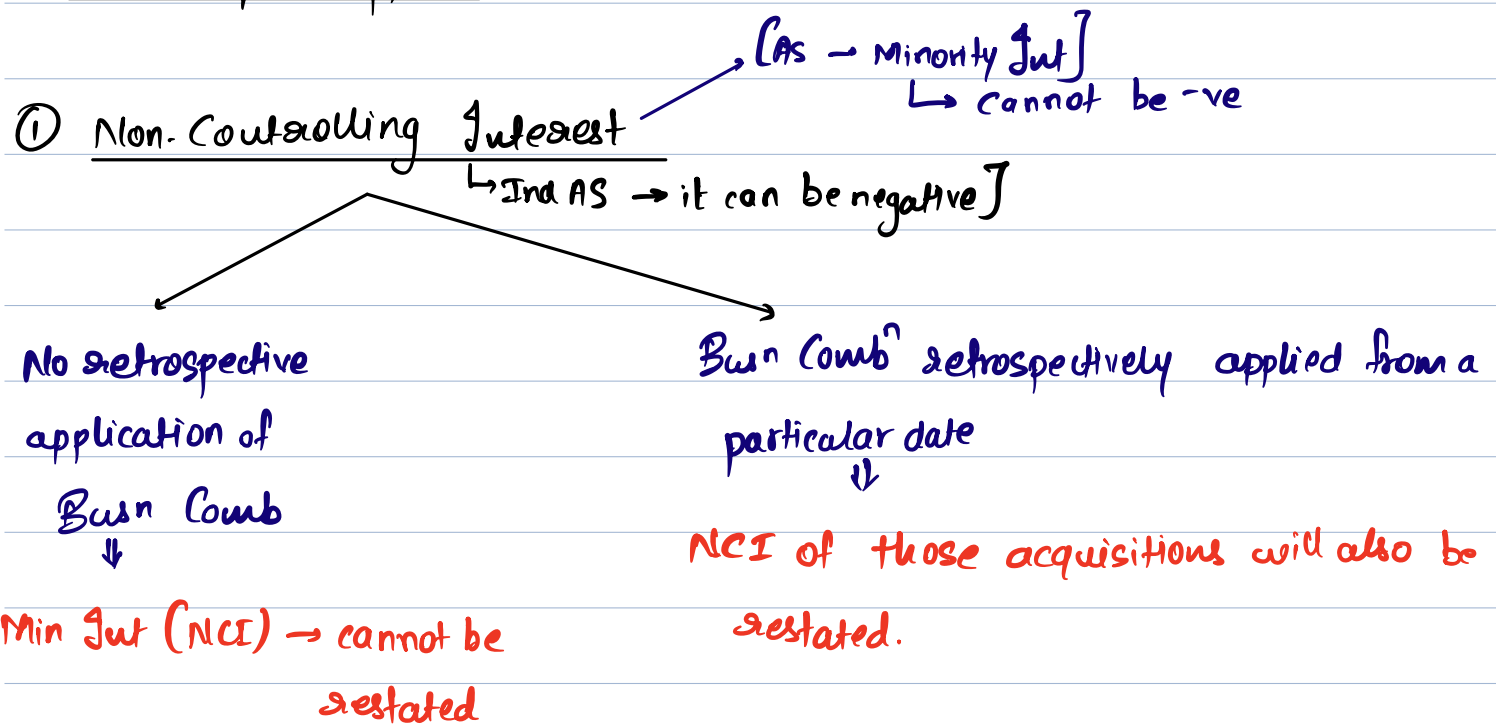 [AS → Minority Int]
↳ cannot be -ve
① Non-Controlling Interest
↳ Ind AS → it can be negative]
No retrospective
application of
Busn Comb
⇓
Min Int (NCI) → cannot be
restated
Busn Combⁿ retrospectively applied from a
particular date
⇓
NCI of those acquisitions will also be
restated.